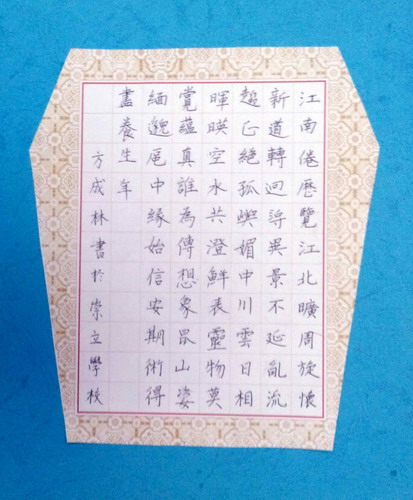 江南倦歷覽江北曠周旋懷
新道轉迥尋異景不延亂流
趨正絕孤嶼媚中川雲日相
暉暎空水共澄鮮表靈物莫
賞蘊真誰為傳想象昆山姿
緬邈區中緣始信安期術得
盡養生年
方成林書於崇立學校